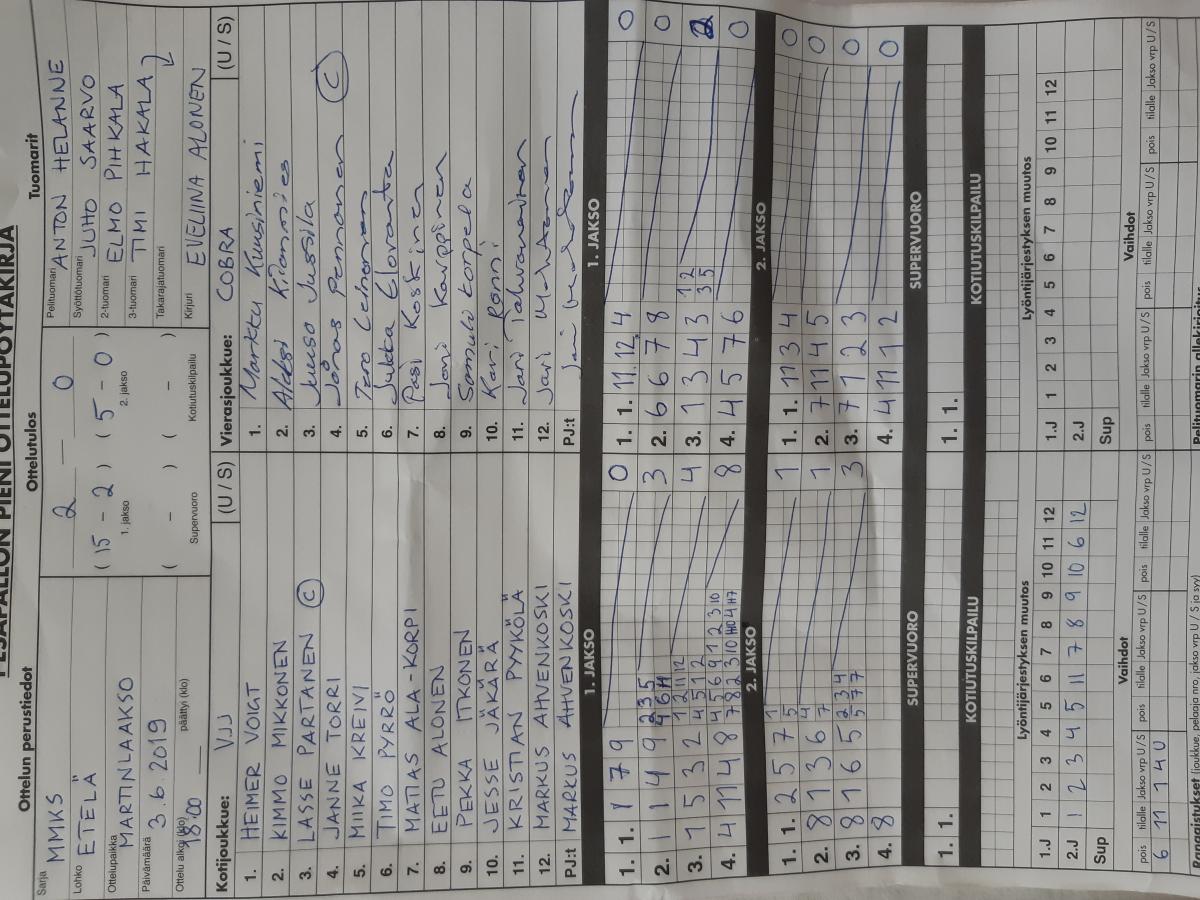 PESÄPALLON PIENI OTTELUPÖYTÄKIRJA
Ottelun perustiedot
Sarja MMKS
Lohko ETELÄ
Ottelupaikka MARTINLAAKSO
Päivämäärä 3.6.2019
Ottelu alkoi (klo) 18:00 päättyi (klo) —
Ottelutulos
2 — 0
( 15 - 2 ) ( 5 - 0 )
1. jakso 2. jakso
( - ) ( - )
Supervuoro Kotiutuskilpailu
Tuomarit
Pelituomari ANTON HELANNE
Syöttötuomari JUHO SAARVO
2-tuomari ELMO PIHKALA
3-tuomari TIMI HAKALA
Takarajatuomari
Kirjuri EVELIINA ALONEN
Kotijoukkue: VJJ (U / S)
1. HEIMER VOIGT
2. KIMMO MIKKONEN
3. LASSE PARTANEN C
4. JANNE TORRI
5. MIIKA KREIVI
6. TIMO PYRRÖ
7. MATIAS ALA-KORPI
8. EETU ALONEN
9. PEKKA ITKONEN
10. JESSE JÄKÄRÄ
11. KRISTIAN PYYKÖLÄ
12. MARKUS AHVENKOSKI
PJ:t MARKUS AHVENKOSKI
Vierasjoukkue: COBRA (U / S)
1. Markku Kuusiniemi
2. Aleksi Kiianmies
3. Juuso Jussila
4. Joonas Pennanen C
5. Tero Lehtonen
6. Jukka Elovanta
7. Pasi Koskinen
8. Jari Karppinen
9. Samuli Korpela
10. Kari Ronni
11. Jari Jalvanainen
12. Jari
PJ:t Jari
1. JAKSO
1. 1. 1 7 9 0
2. 1 1 4 9 3
3. 1 5 3 2 4
4. 4 11 4 8 8
2. JAKSO
1. 1. 2 5 7 1
2. 8 1 3 6 1
3. 8 1 6 5 3
4. 8
SUPERVUORO
1. 1.
KOTIUTUSKILPAILU
1. JAKSO
1. 1. 11 12 4 0
2. 6 6 7 8 0
3. 1 3 4 3 2
4. 4 5 7 6 0
2. JAKSO
1. 1. 11 3 4 0
2. 7 11 4 5 0
3. 7 1 2 3 0
4. 4 11 1 2 0
SUPERVUORO
1. 1.
KOTIUTUSKILPAILU
Lyöntijärjestyksen muutos
1.J 1 2 3 4 5 6 7 8 9 10 11 12
2.J 1 2 3 4 5 11 7 8 9 10 6 12
Sup
Vaihdot
pois tilalle Jakso vrp U / S pois tilalle Jakso vrp U / S pois tilalle Jakso vrp U / S
6 11 1 4 U
Lyöntijärjestyksen muutos
1.J 1 2 3 4 5 6 7 8 9 10 11 12
2.J
Sup
Vaihdot
pois tilalle Jakso vrp U / S pois tilalle Jakso vrp U / S pois tilalle Jakso vrp U / S
Rangaistukset (joukkue, pelaaja/pj:t, jakso vrp U / S ja syy)
Pelituomarin allekirjoitus